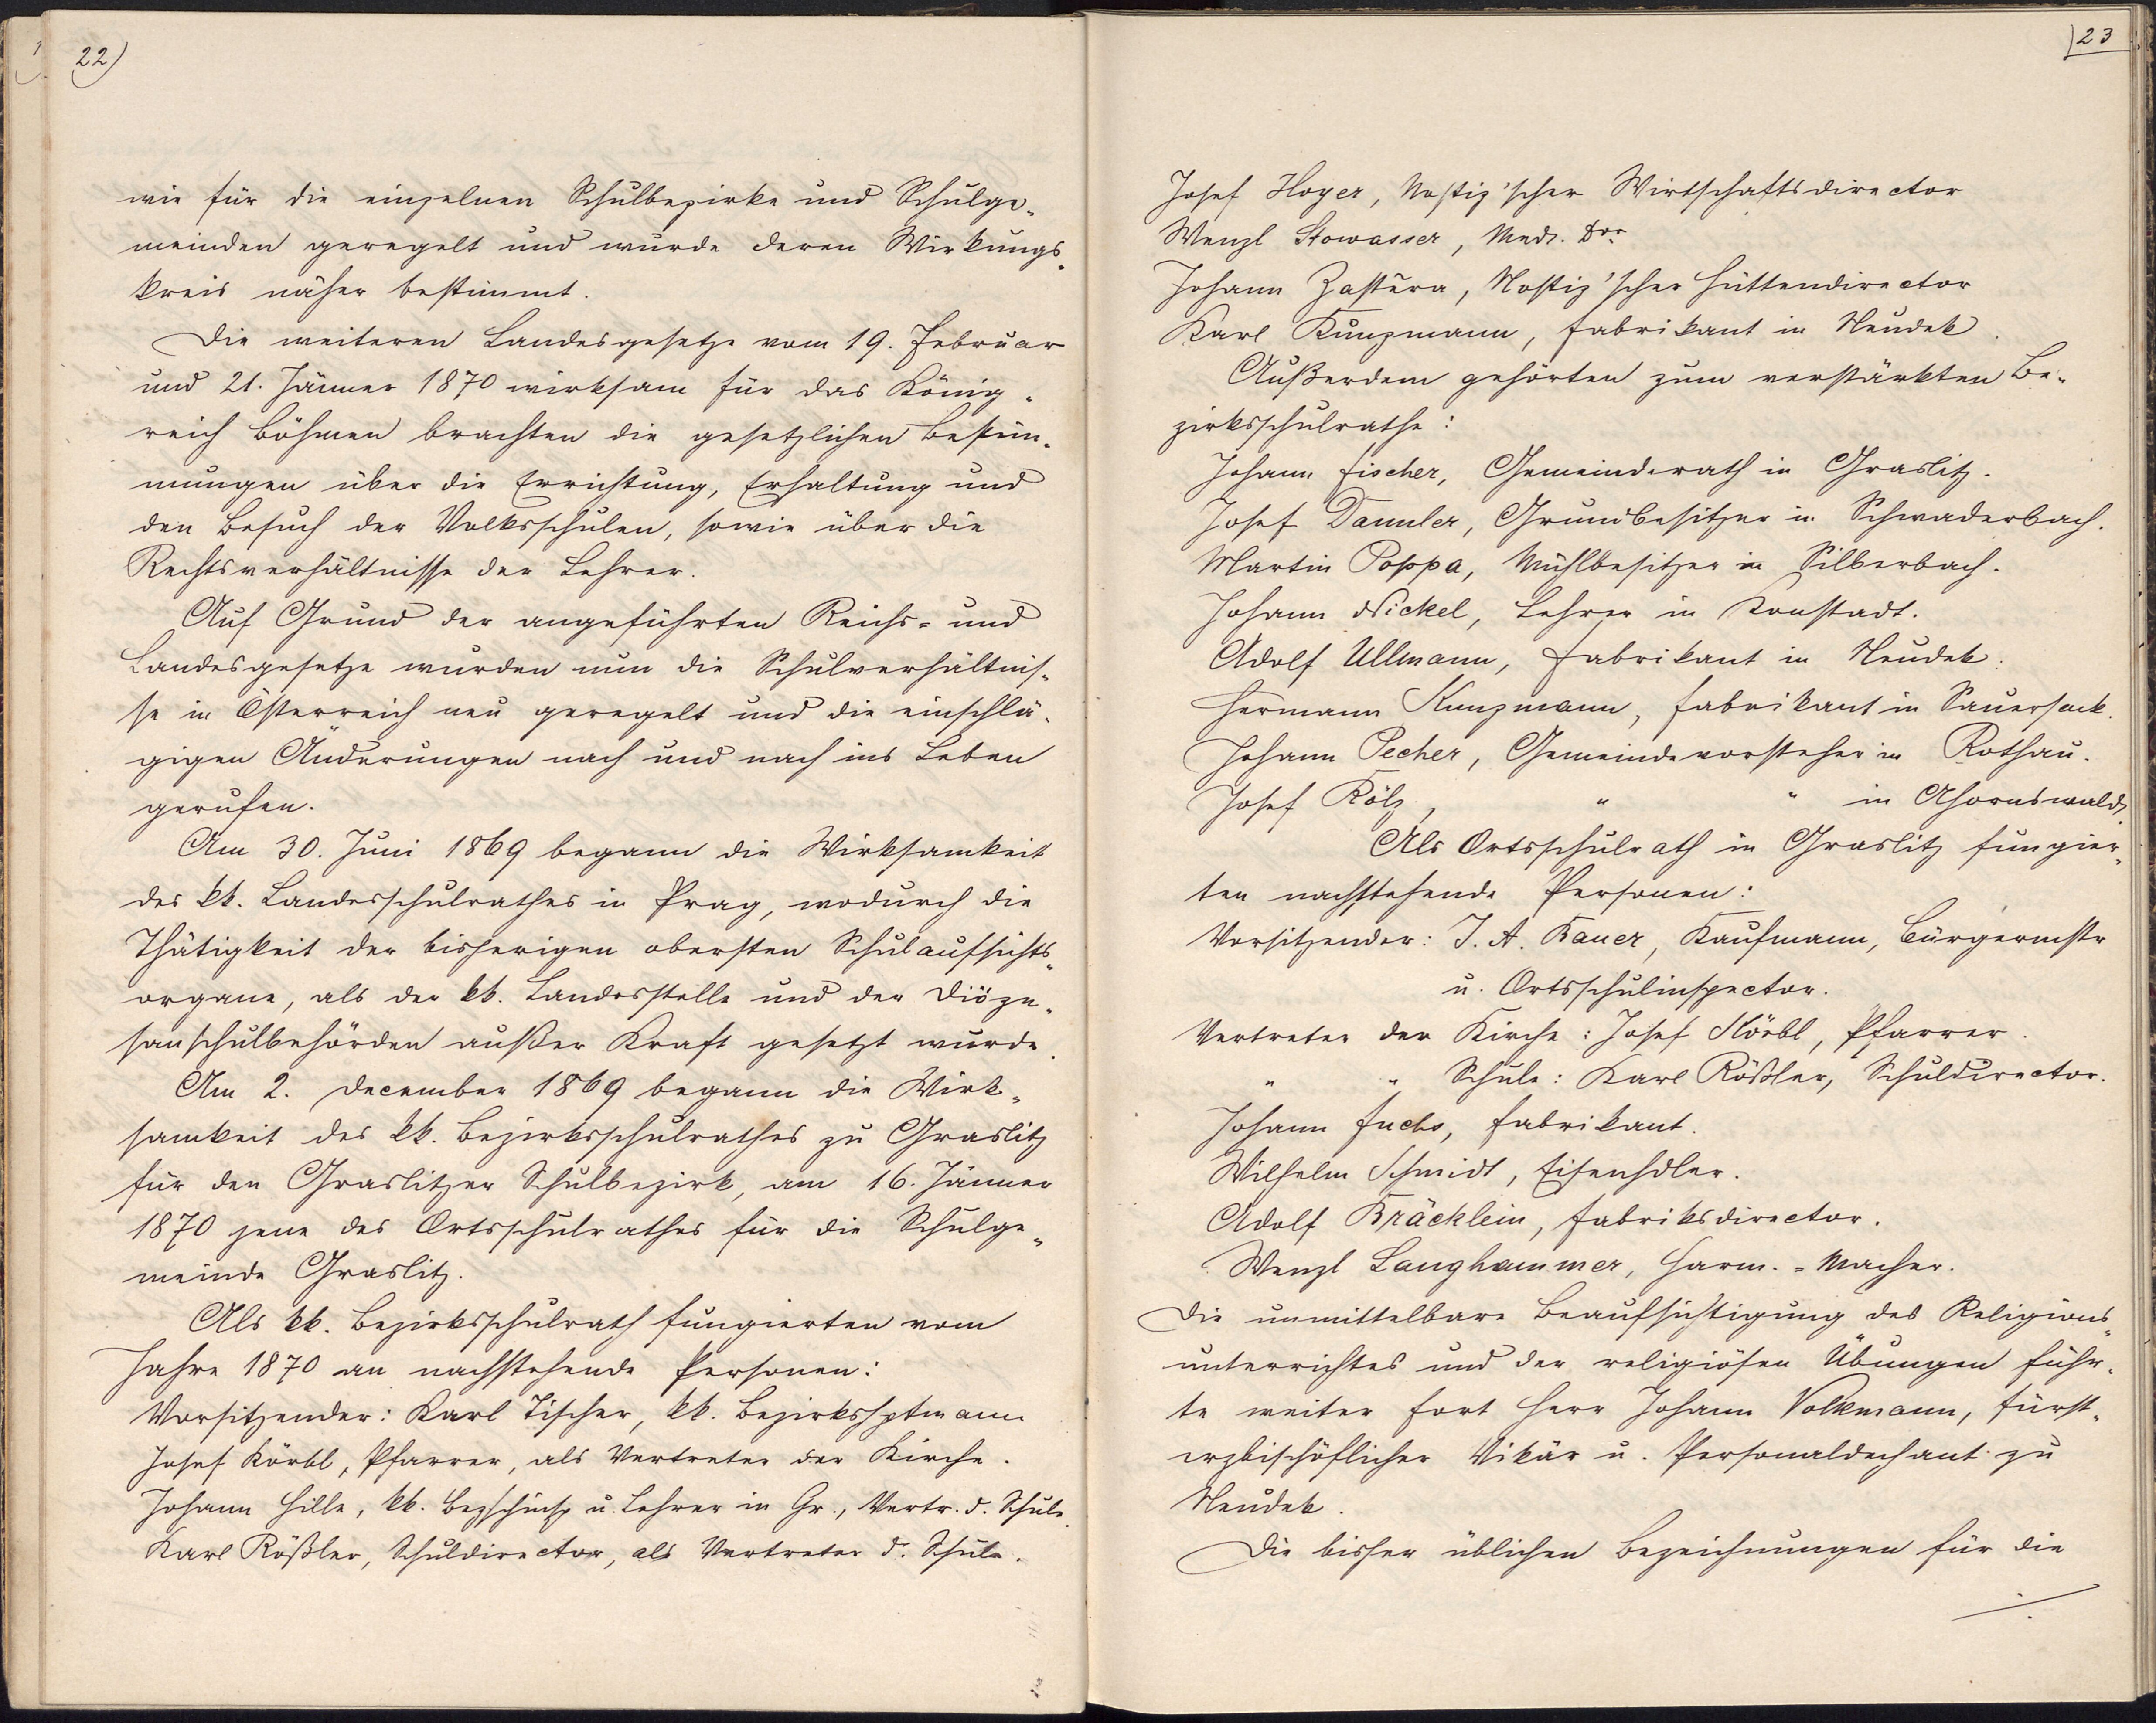 22)
wie für die einzelnen Schulbezirke und Schulge-
meinden geregelt und wurde deren Wirkungs-
kreis näher bestimmt.
Die weiteren Landesgesetze vom 19. Februar
und 21. Jänner 1870 wirksam für das König-
reich Böhmen brachten die gesetzlichen Bestim-
mungen über die Errichtung, Erhaltung und
den Besuch der Volksschulen, sowie über die
Rechtsverhältnisse der Lehrer.
Auf Grund der angeführten Reichs- und
Landesgesetze wurden nun die Schulverhältnis-
se in Österreich neu geregelt und die einschlä-
gigen Änderungen nach und nach ins Leben
gerufen.
Am 30. Juni 1869 begann die Wirksamkeit
des kk. Landesschulrathes in Prag, wodurch die
Thätigkeit der bisherigen obersten Schulaufsichts-
organe, als der kk. Landesstelle und der Diöze-
sanschulbehörden außer Kraft gesetzt wurde.
Am 2. December 1869 begann die Wirk-
samkeit des kk. Bezirksschulrathes zu Graslitz
für den Graslitzer Schulbezirk, am 16. Jänner
1870 jene des Ortsschulrathes für die Schulge-
meinde Graslitz.
Als kk. Bezirksschulrath fungierten vom
Jahre 1870 an nachstehende Personen:
Vorsitzender: Karl Tischer, kk. Bezirkshptmann
Josef Körbl, Pfarrer, als Vertreter der Kirche.
Johann Hille, kk. Bezschinsp u. Lehrer in Gr., Vertr. d. Schule.
Karl Rößler, Schuldirector, als Vertreter d. Schule.
23
Josef Hoyer, Nostiz'scher Wirtschaftsdirector
Wenzl Stowasser, Med. Dor
Johann Zastěra, Nostiz'scher Hüttendirector
Karl Kunzmann, Fabrikant in Neudek.
Außerdem gehörten zum verstärkten Be-
zirksschulrathe:
Johann Fischer, Gemeinderath in Graslitz.
Josef Dannler, Grundbesitzer in Schwaderbach.
Martin Poppa, Mühlbesitzer in Silberbach.
Johann Nickel, Lehrer in Konstadt.
Adolf Ullmann, Fabrikant in Neudek.
Hermann Kunzmann, Fabrikant in Sauersack.
Johann Pecher, Gemeindevorsteher in Rothau.
Josef Kölz, " " in Ahornswald.
Als Ortsschulrath in Graslitz fungier-
ten nachstehende Personen:
Vorsitzender: J. A. Bauer, Kaufmann, Bürgermstr
u. Ortsschulinspector.
Vertreter der Kirche: Josef Körbl, Pfarrer.
" " Schule: Karl Rößler, Schuldirector.
Johann Fuchs, Fabrikant.
Wilhelm Schmidt, Eisenhdler.
Adolf Bräcklein, Fabriksdirector.
Wenzl Langhammer, Harm.-Macher.
Die unmittelbare Beaufsichtigung des Religions-
unterrichtes und der religiösen Übungen führ-
te weiter fort Herr Johann Volkmann, fürst-
erzbischöflicher Vikär u. Personaldechant zu
Neudek.
Die bisher üblichen Bezeichnungen für die
./.